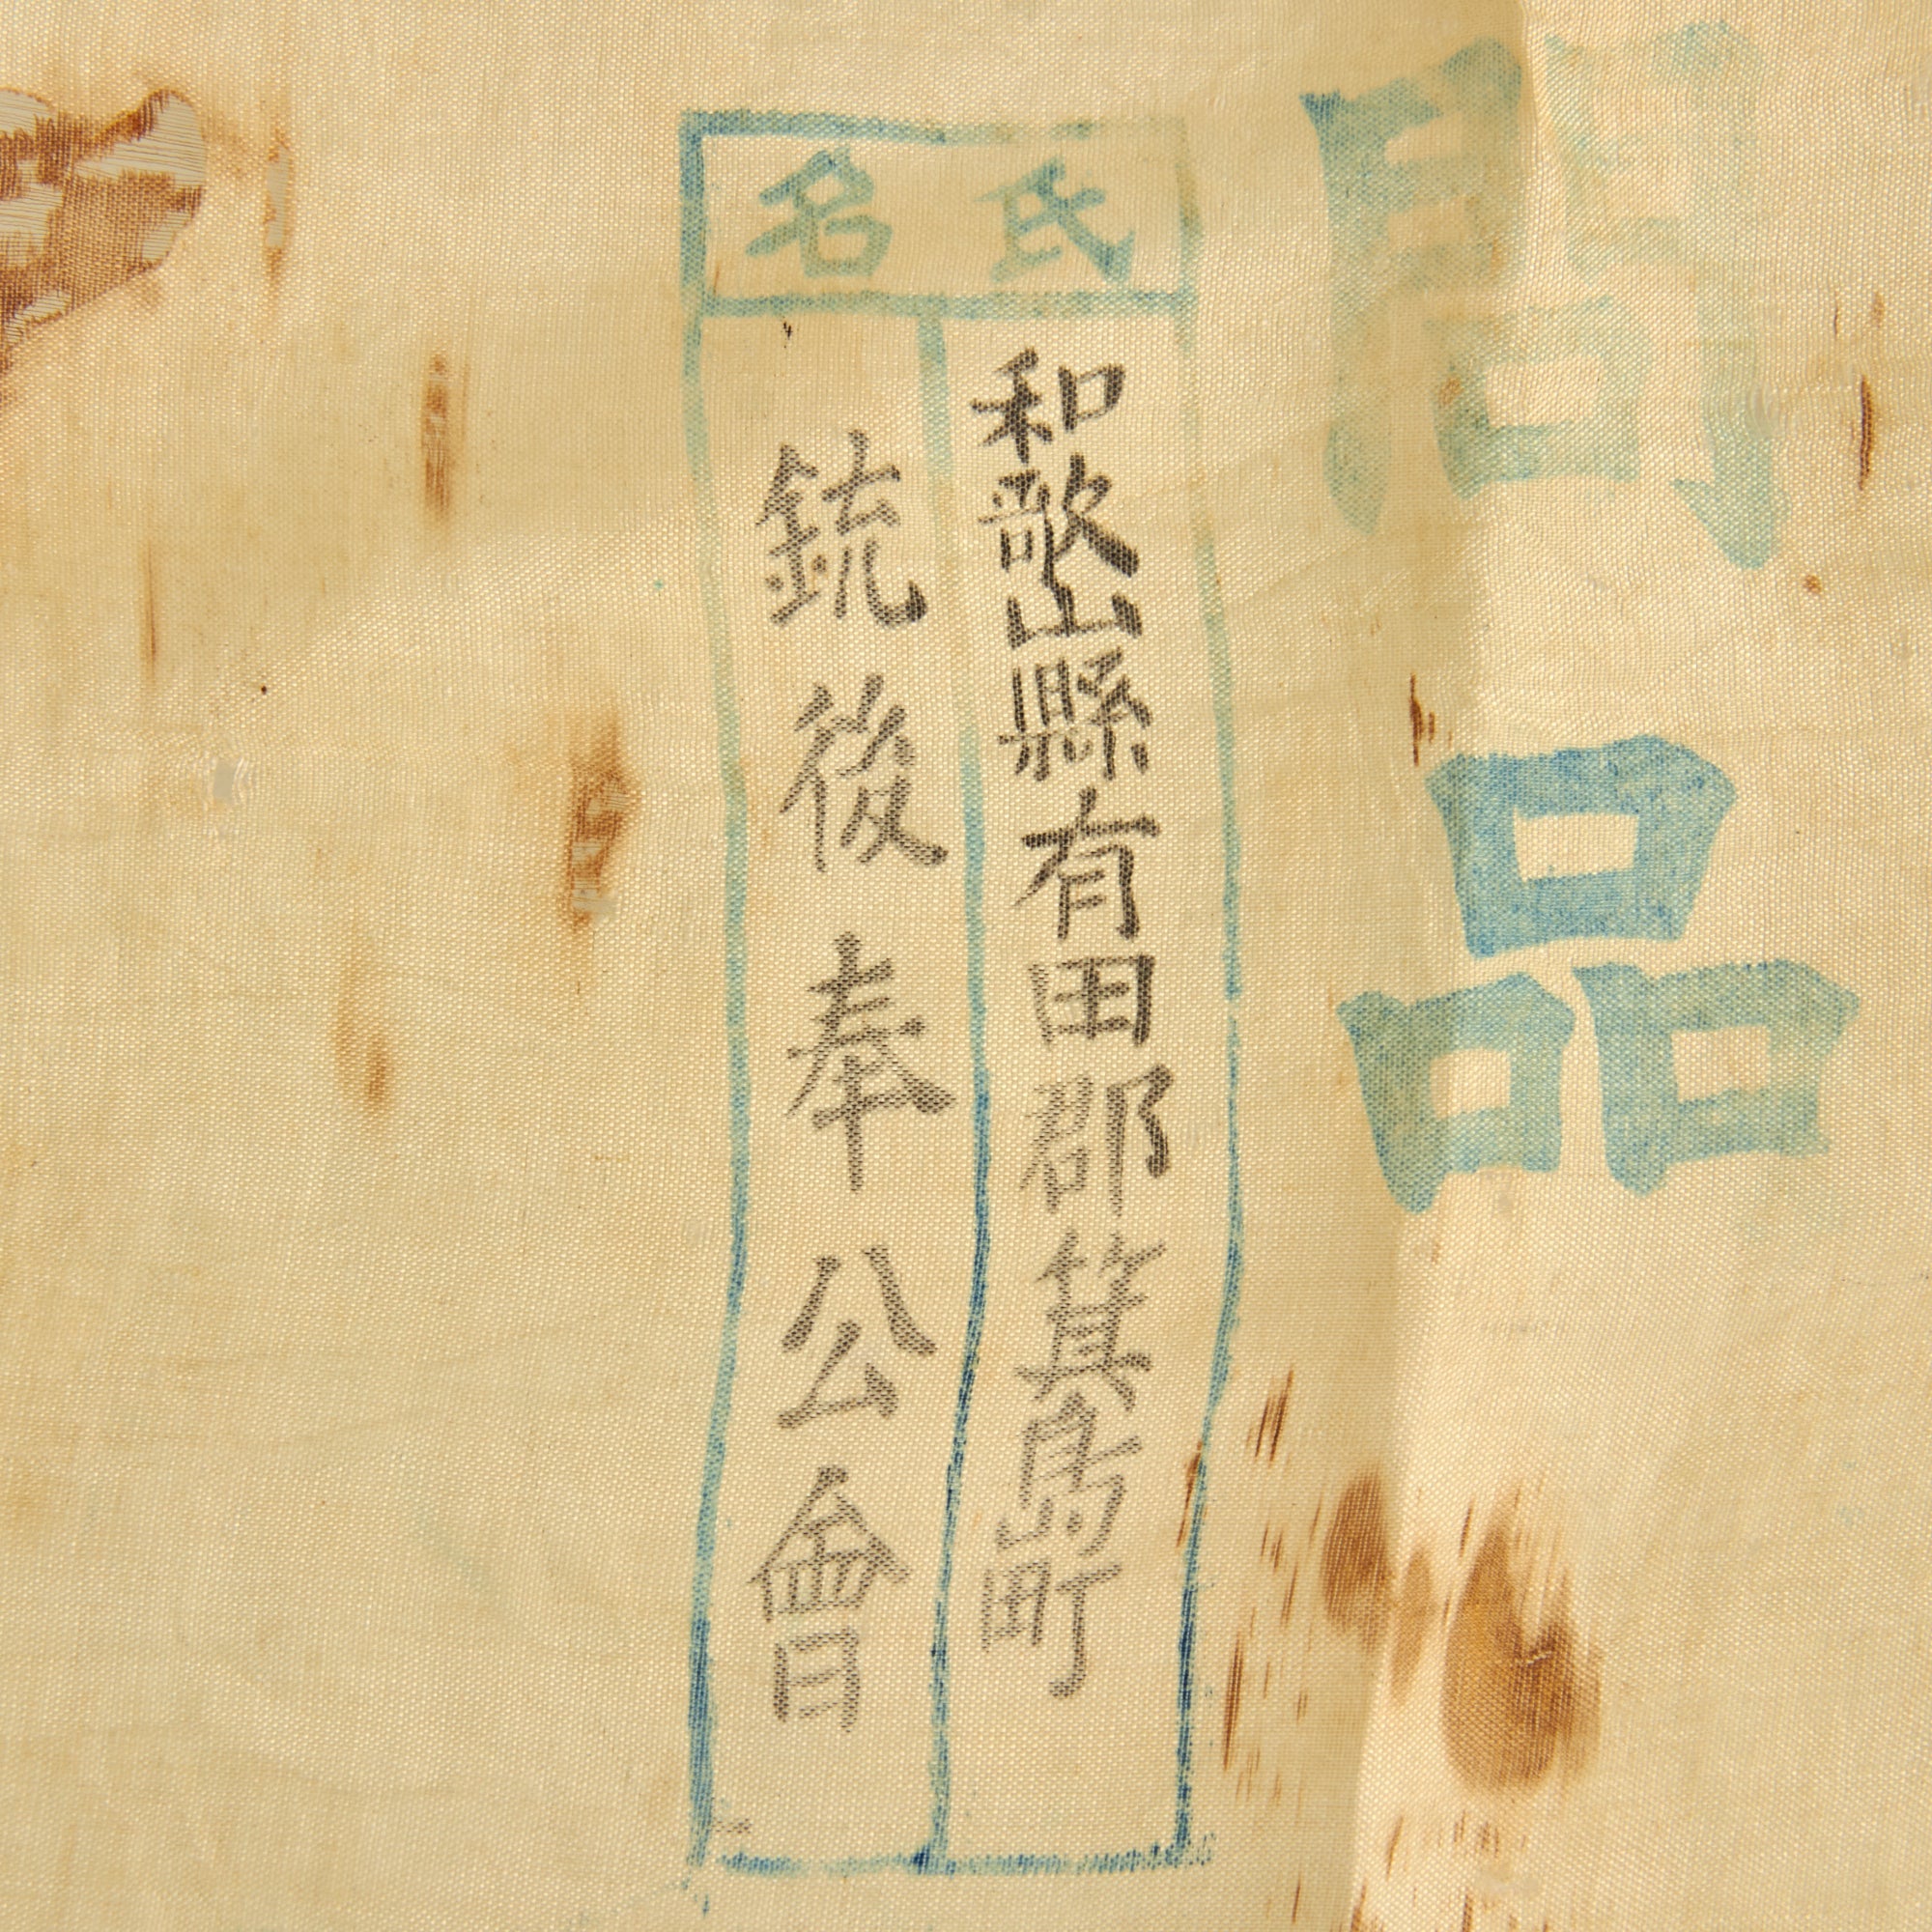 問品
氏名
和歌山縣有田郡箕島町
銃後奉公會